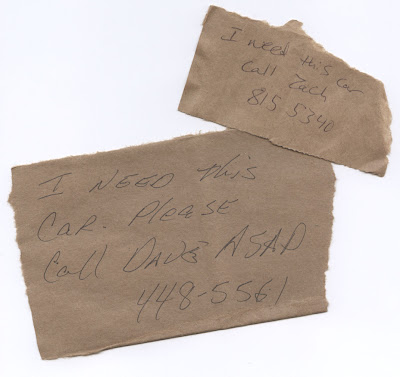 I need this car
Call Zach
815 5340
I NEED this
CAR. PLEASE
Call DAVE ASAP
448-5561